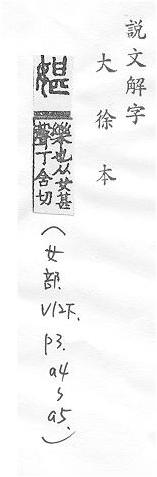 說文解字
大徐本
媅
樂也从女甚
聲丁含切
(女部
V12下.
p3.
a4
~
a5.)